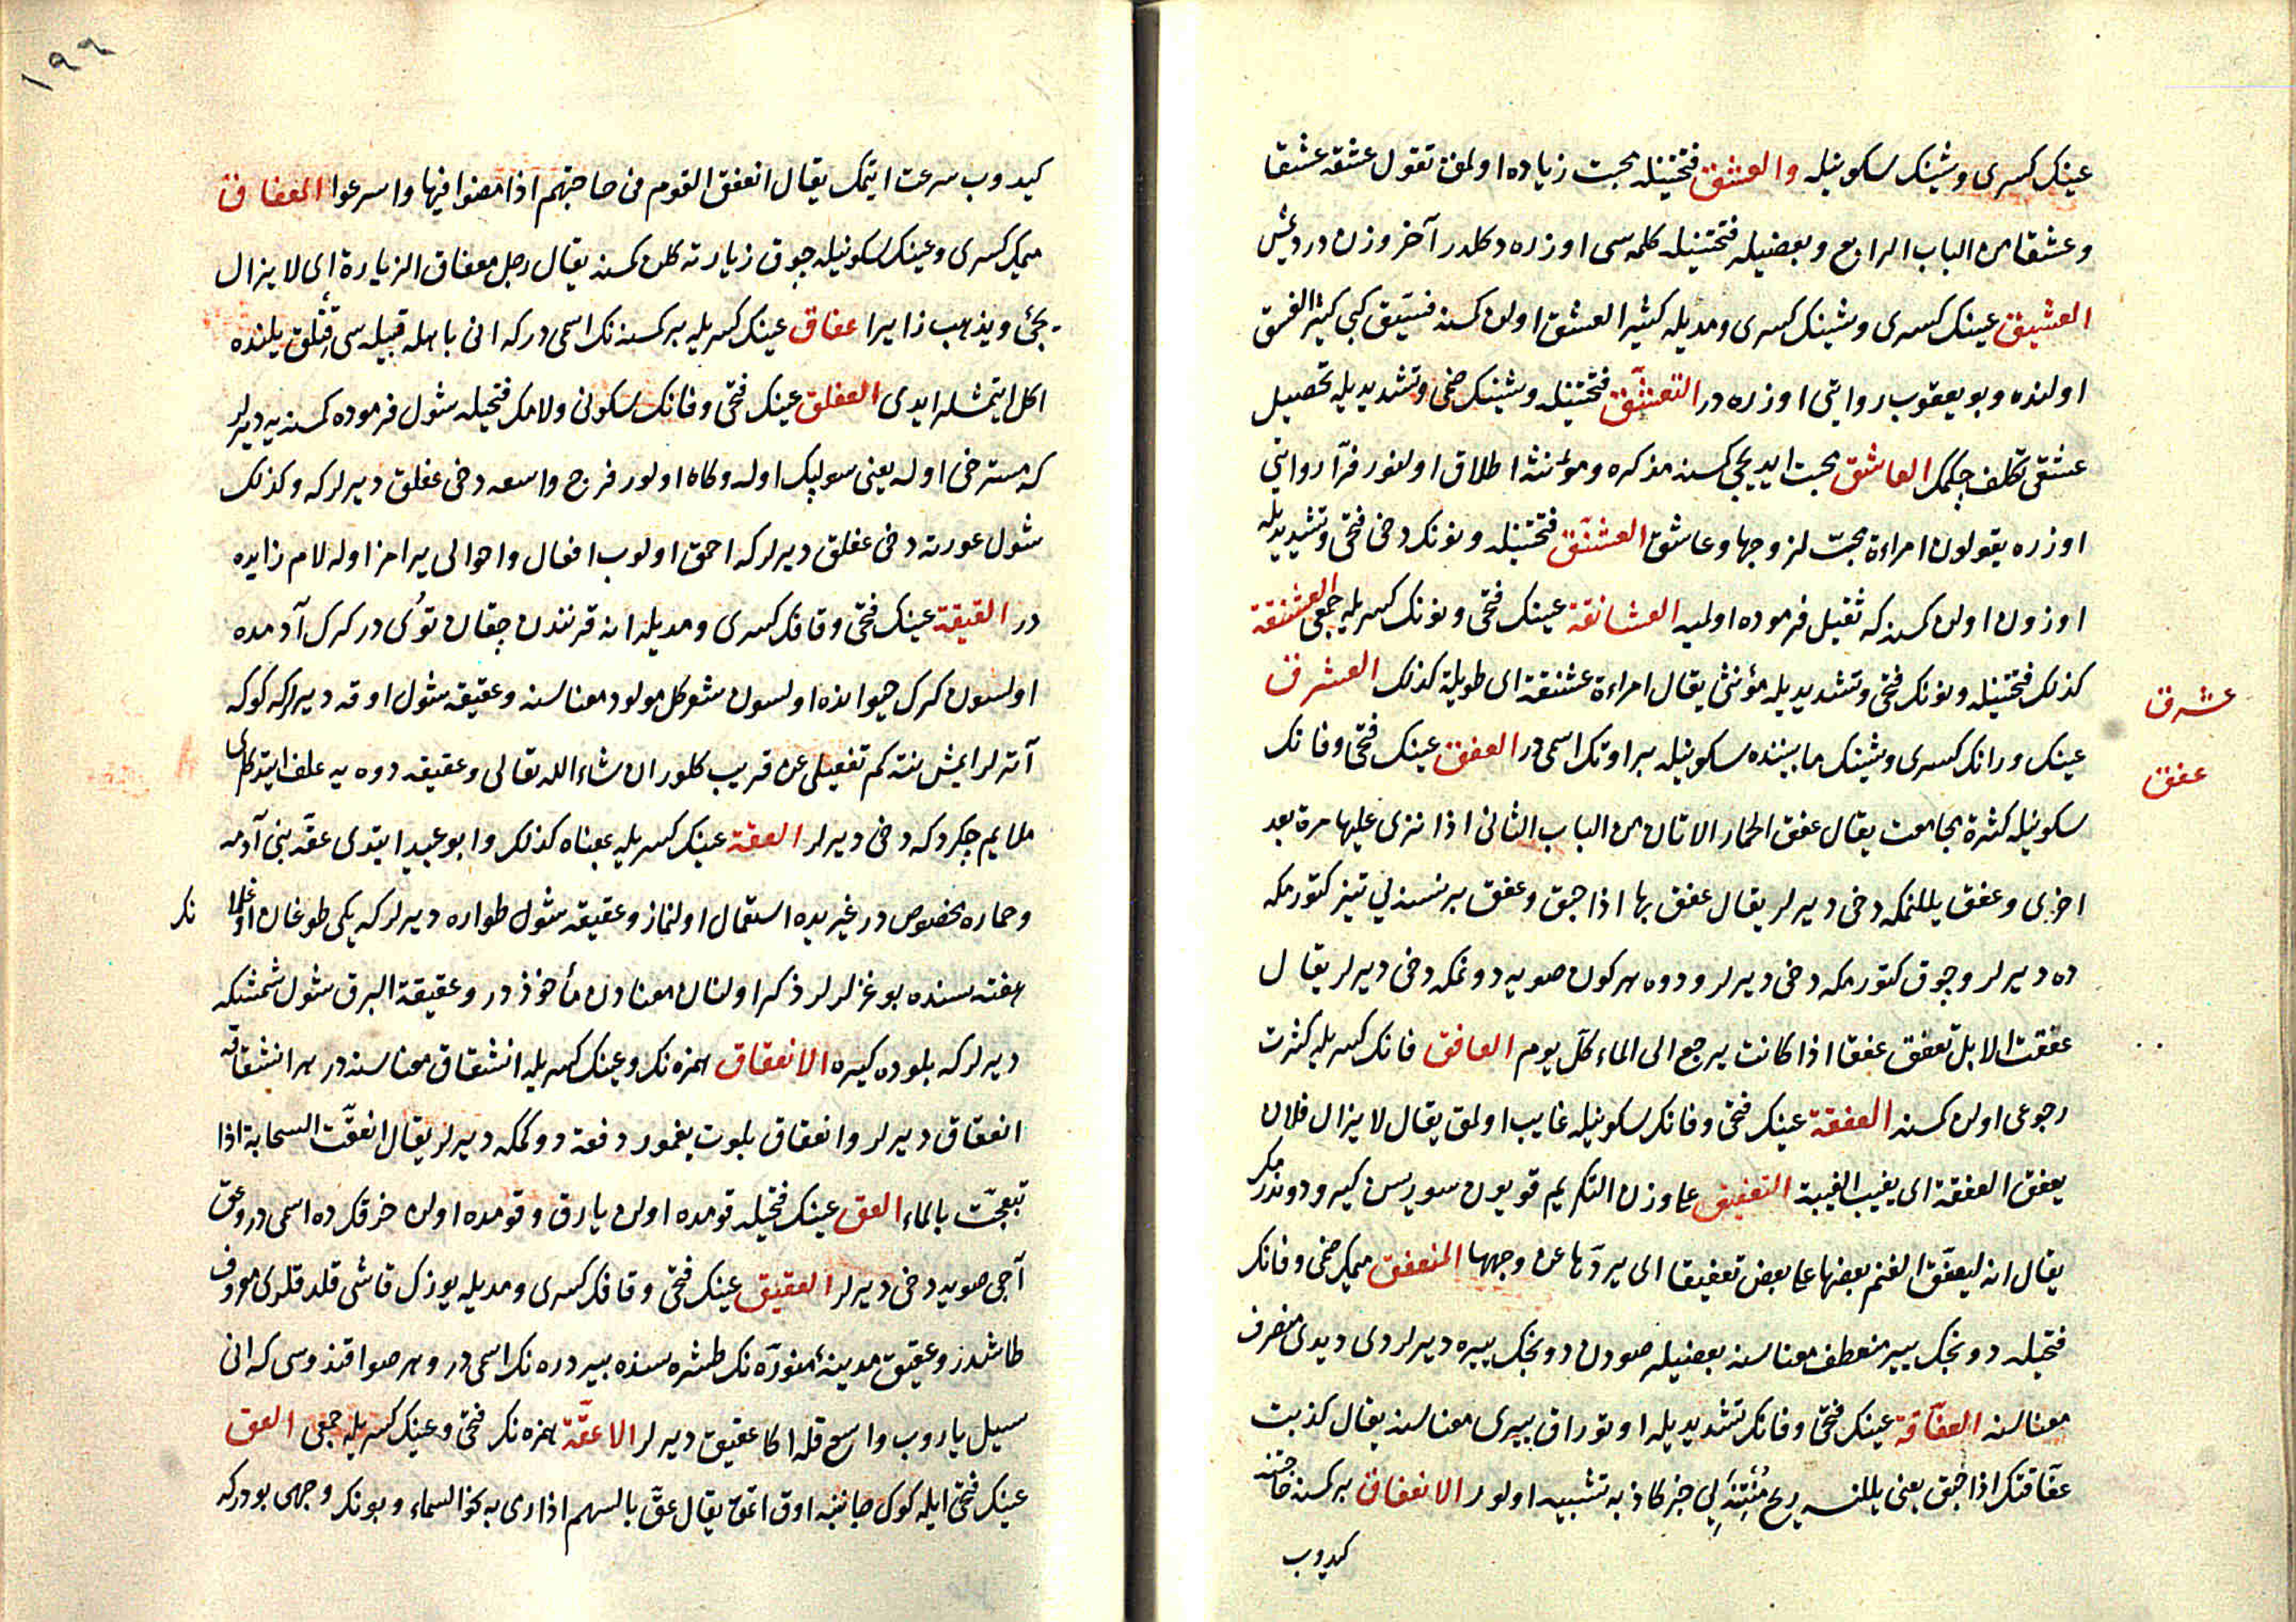 عينك كسرى وشينك سكونيله والعشق فتحتينله محبت زياده اولمق تقول عشقه عشقا
وعشقا من الباب الرابع وبعضيله فتحتينله كلمه سى اوزره دكلدر آخر وزن در دعيش
العشيق عينك كسرى وشينك كسرى ومديله كثير العشق اولن كمسنه فسيق كبى كثير الفسق
اولنده وبو يعقوب روايتى اوزره در التعشق فتحتينله وشينك ضمى وتشديديله تحصيل
عشقى تكلف چكمك العاشق محبت ايديجى كمسنه مذكره ومؤنثه اطلاق اولنور فرآ روايتى
اوزره يقولون امراءة محبّ لزوجها وعاشق العشنّق فتحتينله ونونك دخى فتحى وتشديديله
اوزون اولن كمسنه كه ثقيل فرموده اولميه العشانقة عينك فتحى ونونك كسريله جمعى العشنقة
كذلك فتحتينله ونونك فتحى وتشديديله مؤنثى يقال امراءة عشنقة اى طويلة كذلك العشرق
عشرق
عينك ورانك كسرى وشينك مابيننده سكونيله بر اوتك اسمى در العفق عينك فتحى وفانك
عفق
سكونيله كثرة مجامعت يقال عفق الحمار الاتان من الباب الثانى اذا نزى عليها مرة بعد
اخرى وعفق يللنمكه دخى ديرلر يقال عفق بها اذا حبق وعفق بر نسنه يى تيز كتورمكه
ده ديرلر وچوق كتورمكه دخى ديرلر ودوه هر كون صويه دونمكه دخى ديرلر يقال
عفقت الابل تعفق عفقا اذا كانت يرجع الى الماء كل يوم العافق فانك كسريله كثرت
رجوعى اولن كمسنه العفقة عينك فتحى وفانك سكونيله غايب اولمق يقال لايزال فلان
يعفق العفقة اى يغيب الغيبة التعفيق على وزن التكريم قويون سوريسن كيرو دوندرمك
يقال انه ليعفّق الغنم بعضها على بعض تعفيقا اى يردّها عن وجهها المنعفق ميمك ضمى وفانك
فتحيله دونجك يير منعطف معناسنه بعضيله صودن دونجك ييره ديرلردى ديدى منصرف
معناسنه العفّاقة عينك فتحى وفانك تشديديله اوتوراق ييرى معناسنه يقال كذبت
عفّاقتك اذا حبق يعنى يللنسه ريح مُنتنه يى خبر كاذبه تشبيه اولور الانعفاق بر كمسنه حاجتنه
كيدوب
١٩٦
كيدوب سرعت ايتمك يقال انعفق القوم فى حاجتهم اذا مضوا فيها واسرعوا المعفاق
ميمك كسرى وعينك سكونيله چوق زيارته كلن كمسنه يقال رجل معفاق الزيارة اى لايزال
يجئ ويذهب زايرا عفاق عينك كسريله بر كمسنه نك اسمى در كه انى باهله قبيله سى قتلق يلنده
اكل ايتمشلر ايدى العفلق عينك فتحى وفانك سكونى ولامك فتحيله شول فرموده كمسنه يه ديرلر
كه مسترخى اوله يعنى سولپك اوله وكاه اولور فرج واسعه دخى عفلق ديرلر كه وكذلك
شول عورته دخى عفلق ديرلر كه احمق اولوب افعال واحوالى يرامز اوله لام زايده
در العقيقة عينك فتحى وقافك كسرى ومديله انه قرنندن چقان توُى در كرك آدمده
اولسون كرك حيوانده اولسون شعر كل مولود معناسنه وعقيقه شول اوقه ديرلر كه كوكه
آتهلر ايمش نته كم تفصيلى عن قريب كلور ان شاء الله تعالى وعقيقه دوه يه علف ايتدكلرى
ملايم چكردكه دخى ديرلر العقة عينك كسريله بمعناه كذلك وابو عبيد ايتدى عقّه بنى آدمه
وحماره مخصوص در غيريده استعمال اولنماز وعقيقه شول طواره ديرلر كه يكى طوغان اوغلانك
هفته سنده بوغزلرلر ذكر اولنان معنادن مأخوذ در وعقيقة البرق شول شمشكه
ديرلر كه بلوده كيره الانعقاق همزه نك وعينك كسريله انشقاق معناسنه در هر انشقاقه
انعقاق ديرلر وانعقاق بلوت يغمور دفعة دوكمكه ديرلر يقال انعقّت السحابة اذا
تبعجّت بالماء العق عينك فتحيله قومده اولن يارق وقومده اولن خرقك ده اسمى در وعق
آجى صويه دخى ديرلر العقيق عينك فتحى وقافك كسرى ومديله يوزك قاشى قلدقلرى معروف
طاشدر وعقيق مدينهٔ منوره نك طشره سنده بير دره نك اسمى در وهر صو اقندوسى كه انى
سيل ياروب واسع قله اكا عقيق ديرلر الاعقّة همزه نك فتحى وعينك كسريله جمعى العق
عينك فتحى ايله كوك جانبنه اوق اتمق يقال عقّ بالسهم اذا رمى به نحو السماء وبونك وجهى بودر كه